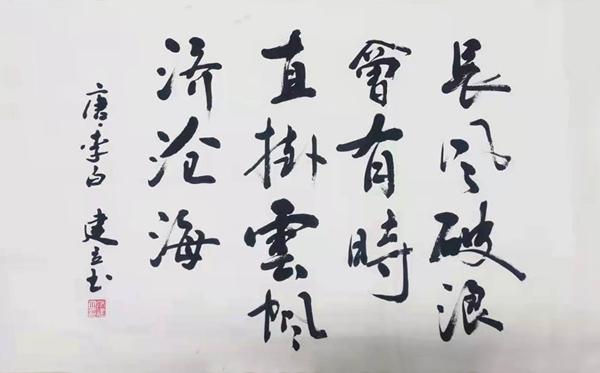 長风破浪
曾有時
直掛雲帆
济沧海
唐·李白 建立书